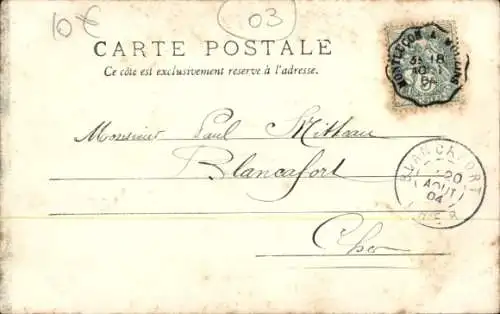 10€
03
CARTE POSTALE
Ce côté est exclusivement réservé à l'adresse.
MONTLUÇON A MOULINS
Monsieur Paul Mitteau
Blancafort
Cher
BLANCAFORT
20
AOUT
04
CHER